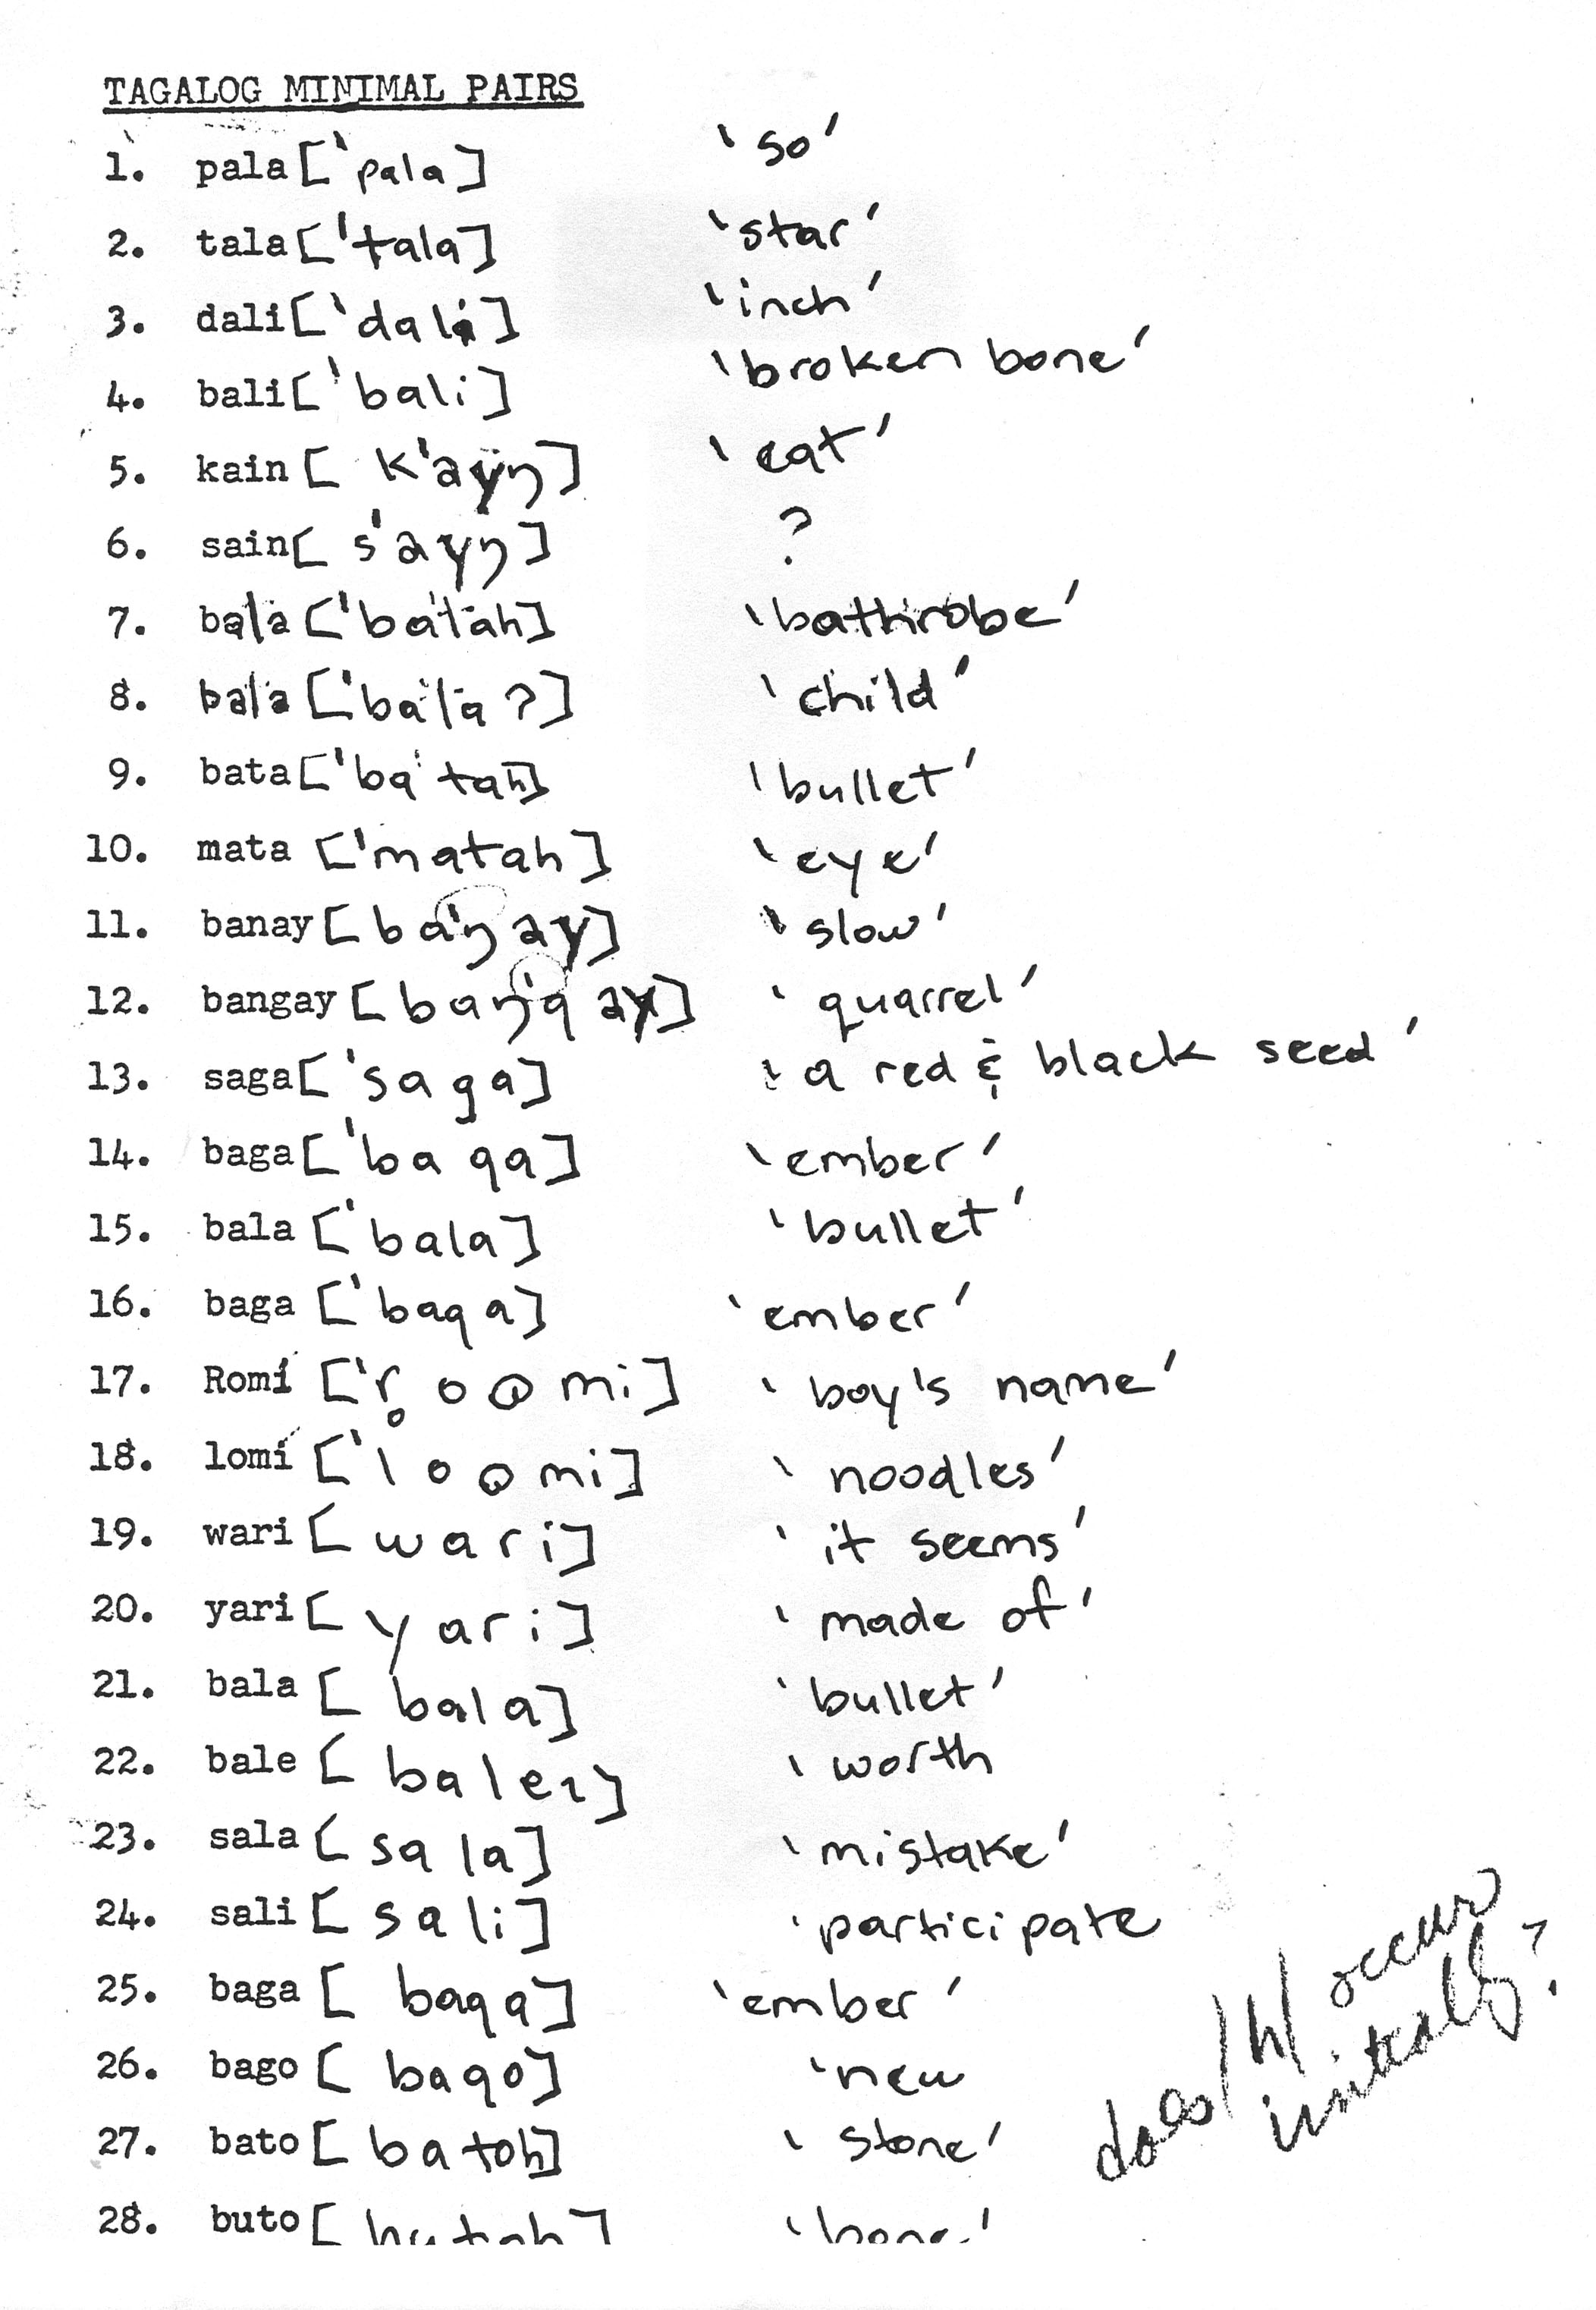 TAGALOG MINIMAL PAIRS
1. pala ['pala] 'so'
2. tala ['tala] 'star'
3. dali ['dali] 'inch'
4. bali ['bali] 'broken bone'
5. kain [k'ayŋ] 'eat'
6. sain [s'ayŋ] ?
7. bala 'bathrobe'
8. bala 'child'
9. bata ['ba'tah] 'bullet'
10. mata ['matah] 'eye'
11. banay [ba'ŋay] 'slow'
12. bangay [baŋ'gay] 'quarrel'
13. saga ['saga] 'a red & black seed'
14. baga ['baga] 'ember'
15. bala ['bala] 'bullet'
16. baga ['baga] 'ember'
17. Romi ['r̥oomi] 'boy's name'
18. lomi ['loomi] 'noodles'
19. wari [wari] 'it seems'
20. yari [yari] 'made of'
21. bala [bala] 'bullet'
22. bale 'worth
23. sala [sala] 'mistake'
24. sali [sali] 'participate
25. baga [baga] 'ember'
26. bago [bago] 'new
27. bato [batoh] 'stone'
28. buto [butoh] 'bone'
does /h/ occur
initially?